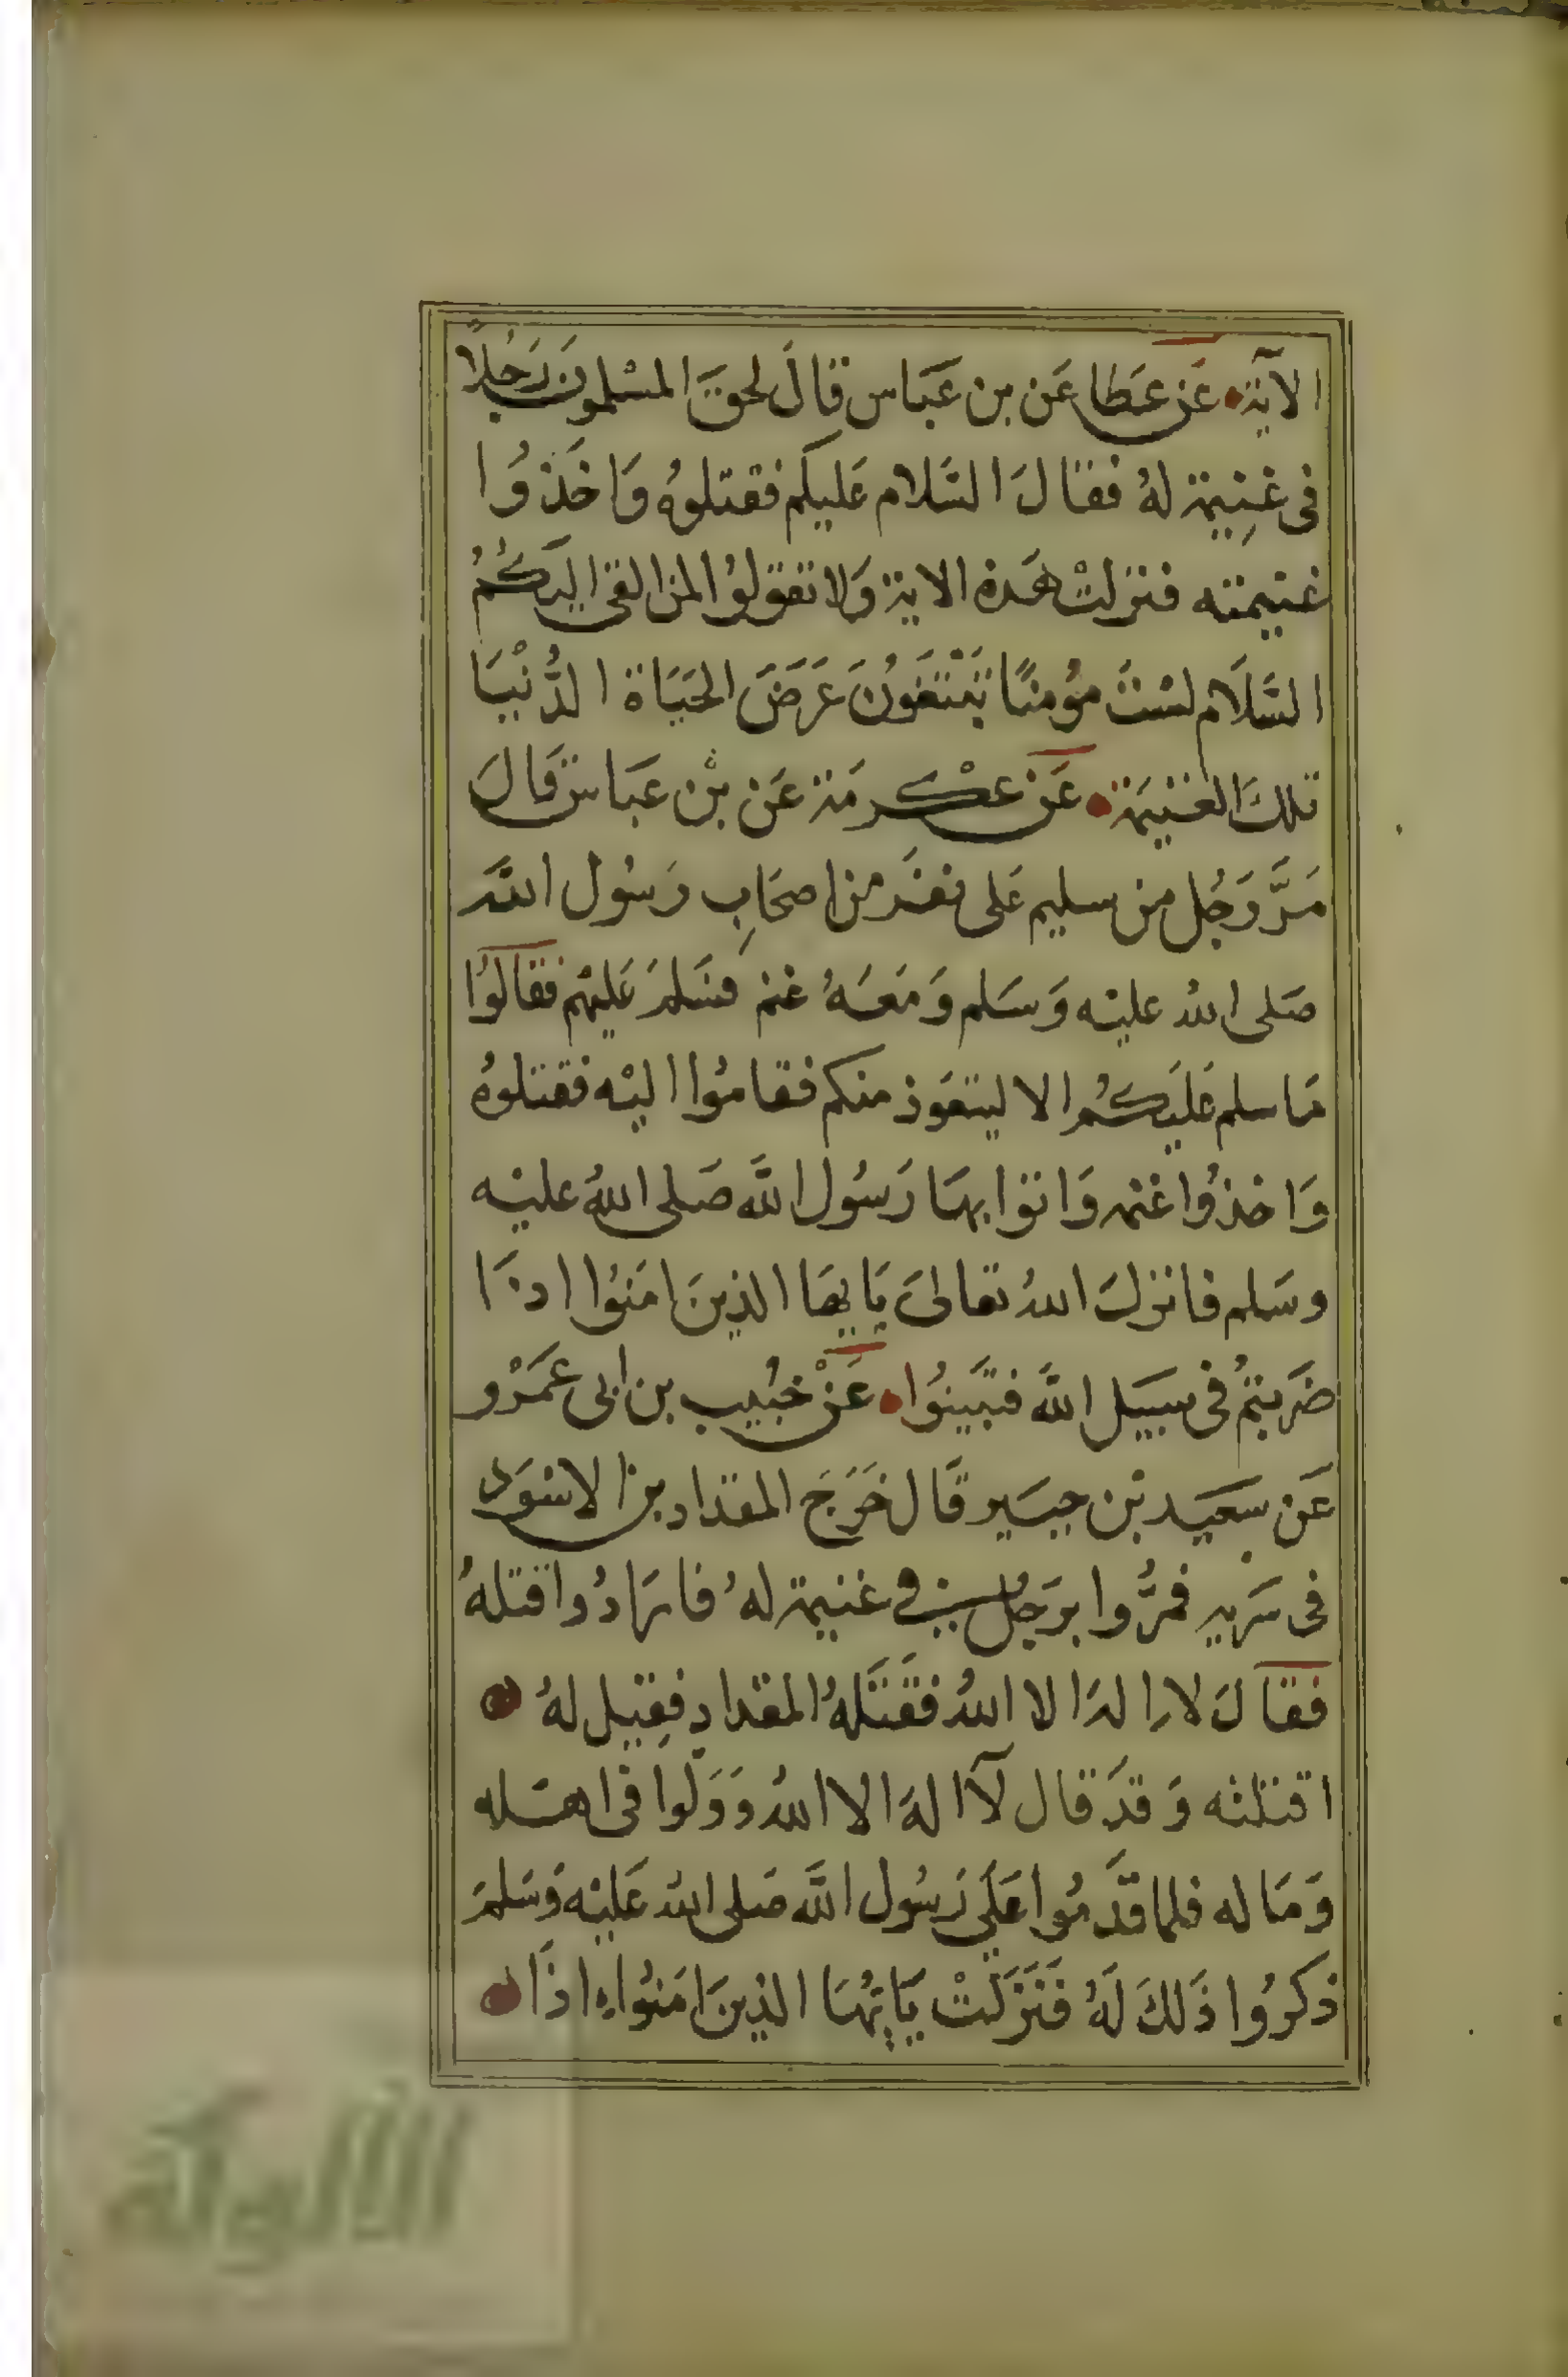 الآية عَن عَطا عَن بن عَبَاس قالَ لحقَ المسْلمونَ رَجُلاً
فى غنِيمة لهُ فقالَ السَّلام عَليكم فقتلوهُ وَاخَذوُا
غنيمته فنزلتْ هَذه الاية وَلا تقولوُا لمن القى اليكُمُ
السَّلاَم لسْتَ مؤُمنًا تَبْتَغوُنَ عَرَضَ الحَيَاة الدُّنْيَا
تلكَ الغنيمَة عَن عكْرمَة عَن بنْ عَباس قَالَ
مَرَّ رَجُل من سليم عَلى نفَر من اصحَابِ رَسُول اللَّه
صَلى الله عليْه وَسَلم وَمَعَهُ غنم فسَلمَ عَليْهم فقالوُا
مَا سلم عَليَكُم الا ليتعَوذ منكم فقامُوا اليْه فقتلوهُ
وَاخذوُا غنمه وَاتوا بهَا رَسُول اللَّه صَلى اللهُ عليْه
وسَلم فانزلَ اللهُ تعالىَ يَايهَا الذينَ امَنوُا اذَا
ضَربتمُ فى سبيَل اللَّه فتبَيَّنوُا عَنْ حَبُيب بن ابى عمَرْو
عَن سعيَد بْن جبيَر قَال خَرَجَ المقداد بن الاسْوَد
فى سَريه فمرُّوا برَجُل فى غنيمة لهُ فارَادُوا قتلهُ
فقالَ لا الهَ الا اللهُ فقَتَلهُ المقدادِ فقِيل لهُ
اقتلته وَقدَ قال لآ الهَ الا اللهُ وَوَلوا فى اهَله
وَمَاله فلما قدَّمُوا عَلَى رَسُول اللَّه صَلى اللهُ عَليْه وَسَلمَ
ذكرُوا ذَلكَ لَهُ فَنَزَلَتْ يَايهُّا الذينَ امَنوُا اِذَا
الألوكة